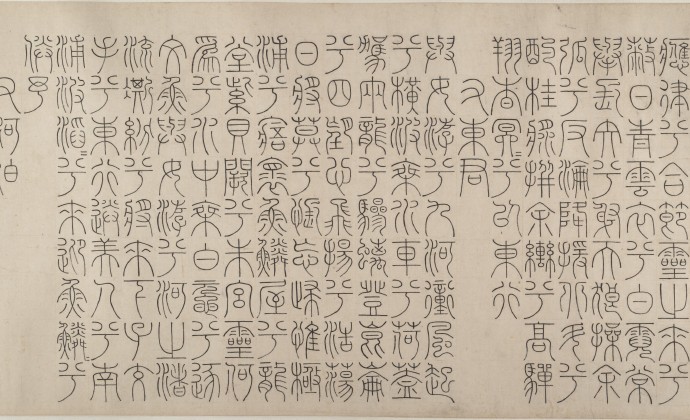 應律兮合節靈之來兮
蔽日青雲衣兮白霓裳
舉長矢兮射天狼操余
弧兮反淪降援北斗兮
酌桂漿撰余轡兮高驒
翔杳冥〻兮以東行
又東君
與女游兮九河衝風起
兮橫波乘水車兮荷蓋
駕兩龍兮驂螭登崑崙
兮四望心飛揚兮浩蕩
日將莫兮悵忘歸惟極
浦兮寤懷魚鱗屋兮龍
堂紫貝闕兮朱宮靈何
為兮水中乘白黿兮逐
文魚與女游兮河之渚
流澌紛兮將來下子交
手兮東行送美人兮南
浦波滔〻兮來迎魚鱗〻兮
媵予
又河伯